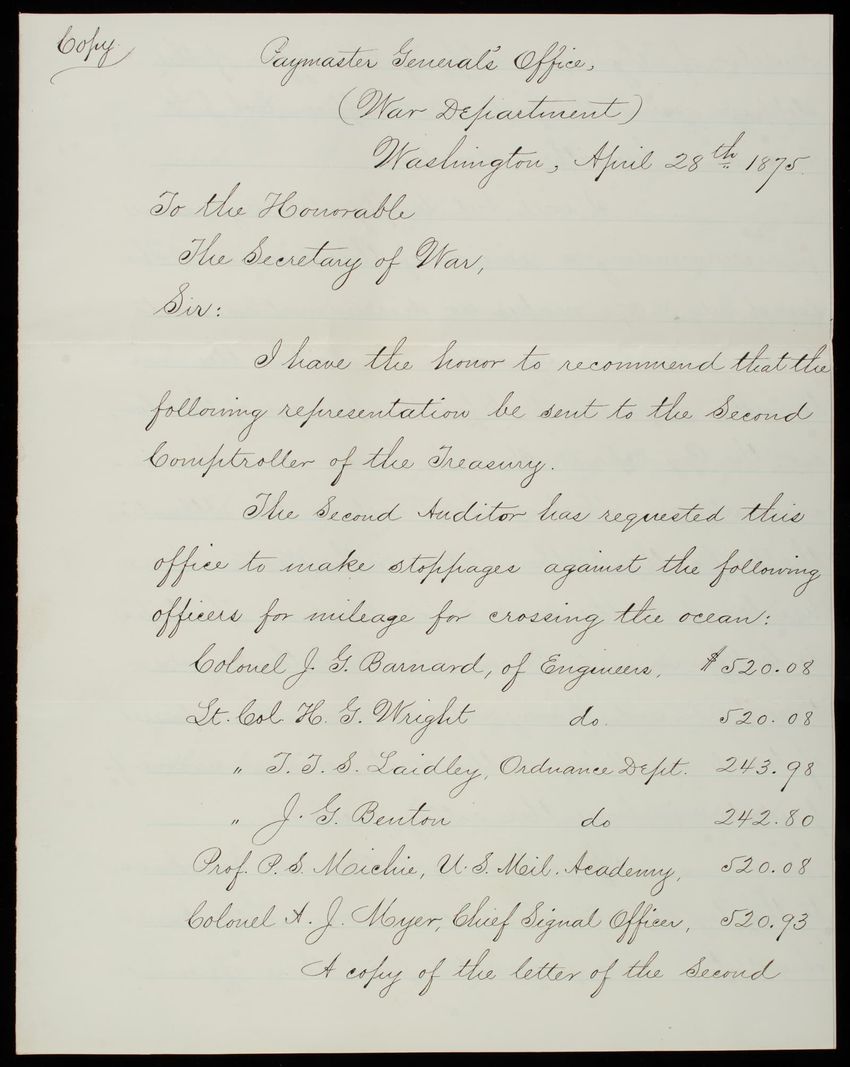 Copy
Paymaster General's Office,
(War Department)
Washington, April 28th 1875.
To the Honorable
The Secretary of War,
Sir:
I have the honor to recommend that the
following representation be sent to the Second
Comptroller of the Treasury.
The Second Auditor has requested this
office to make stoppages against the following
officers for mileage for crossing the ocean:
Colonel J. G. Barnard, of Engineers, $520.08
Lt. Col. H. G. Wright do. 520.08
" T. T. S. Laidley, Ordnance Dept. 243.98
" J. G. Benton do 242.80
Prof. P. S. Michie, U. S. Mil. Academy, 520.08
Colonel A. J. Myer, Chief Signal Officer, 520.93
A copy of the letter of the Second